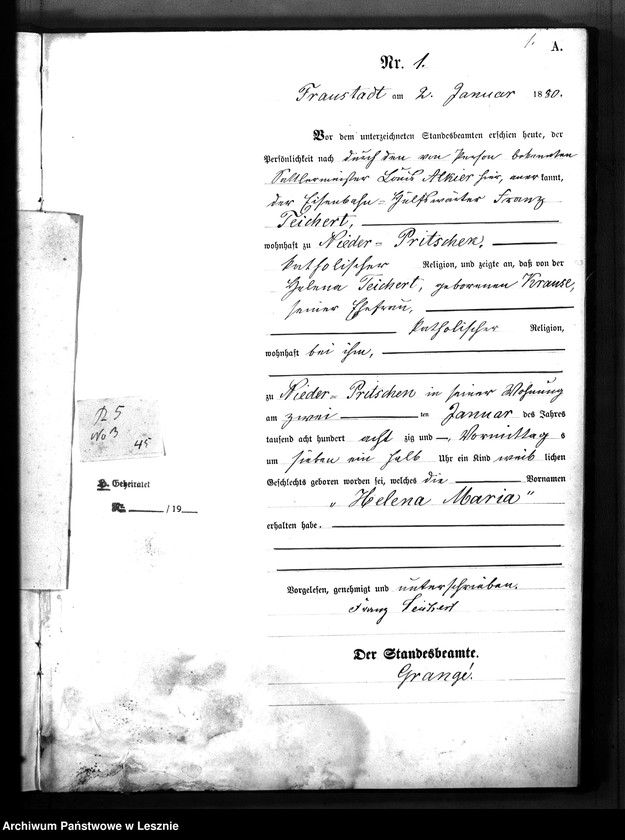 1.
A.
Nr. 1.
Fraustadt am 2. Januar 1880.
Vor dem unterzeichneten Standesbeamten erschien heute, der
Persönlichkeit nach durch den von Person bekannten
Sattlermeister Louis Alkier hier, anerkannt,
der Eisenbahn-Hülfswärter Franz
Teichert,
wohnhaft zu Nieder-Pritschen,
katholischer Religion, und zeigte an, daß von der
Helena Teichert, geborenen Krause,
seiner Ehefrau,
katholischer Religion,
wohnhaft bei ihm,
zu Nieder-Pritschen in seiner Wohnung
am zwei ten Januar des Jahres
tausend acht hundert acht zig und —, Vormittag s
um sieben ein halb Uhr ein Kind weib lichen
Geschlechts geboren worden sei, welches die Vornamen
„Helena Maria"
erhalten habe.
Vorgelesen, genehmigt und unterschrieben.
Franz Teichert
Der Standesbeamte.
Grangé.
No 3
45
Geheiratet
Nr. /19
Archiwum Państwowe w Lesznie